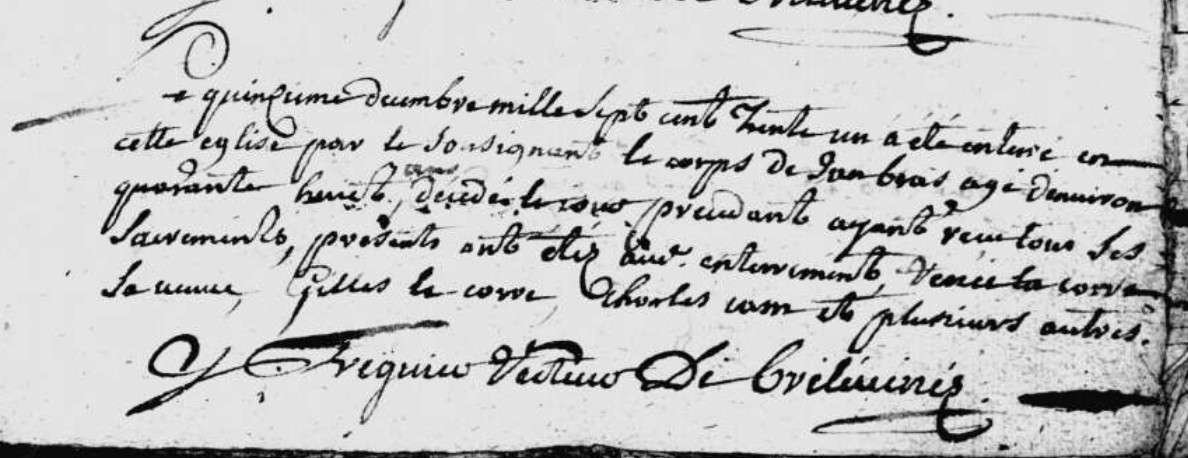 Le quinzieme decembre mille sept cent trente un a été enterré en
cette eglise par le soussignant le corps de Jan bras agé denuiron
quarante huict ans, decedé le iour precedant ayant receu tous ses
Sacrements, présents ont étéz audt. enterrement, la corre
Sa veuue, Gilles le corre, Charles cam et plusieurs autres.
De